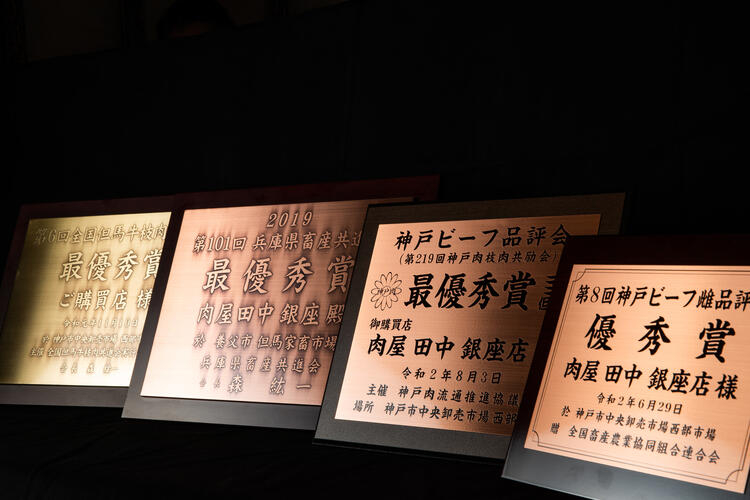 第6回全国但馬牛枝肉
最優秀賞
ご購買店様
令和元年11月11日
於 神戸市中央卸売市場 西部
主催 全国但馬牛枝肉共進会
2019
第101回 兵庫県畜産共進
最優秀賞
肉屋田中 銀座店 殿
於 養父市 但馬家畜市場
兵庫県畜産共進会
会長 森 紘一
神戸ビーフ品評会
(第219回神戸肉枝肉共励会)
神戸肉
最優秀賞
御購買店
肉屋 田中 銀座店
令和2年8月3日
主催 神戸肉流通推進協議
場所 神戸市中央卸売市場西部
第8回神戸ビーフ雌品評
優秀賞
肉屋 田中 銀座店様
令和2年6月29日
於 神戸市中央卸売市場西部市場
贈 全国畜産農業協同組合連合会